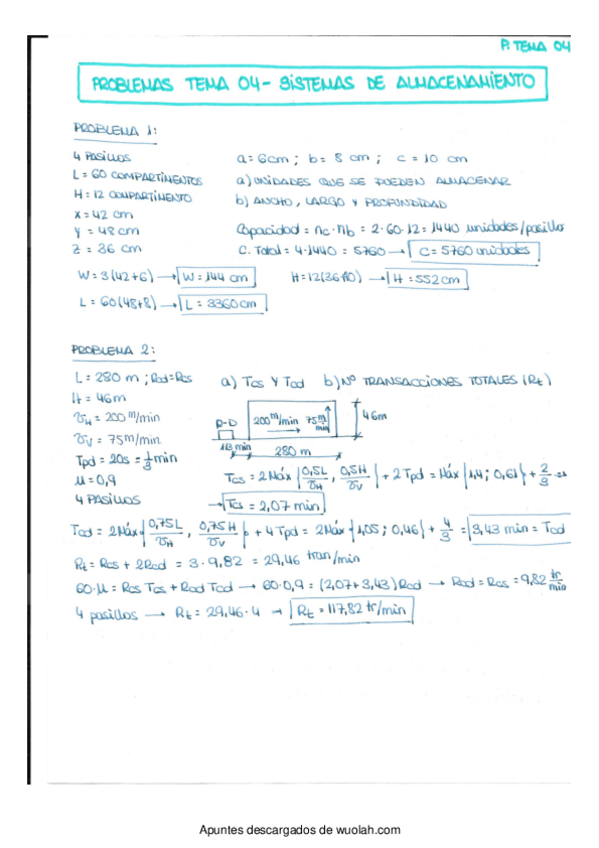 P. TEMA 04
PROBLEMAS TEMA 04 - SISTEMAS DE ALMACENAMIENTO
PROBLEMA 1:
4 PASILLOS
L = 60 COMPARTIMENTOS
H = 12 COMPARTIMENTO
X = 42 cm
Y = 48 cm
Z = 36 cm
a = 6cm ; b = 8 cm ; c = 10 cm
a) UNIDADES QUE SE PUEDEN ALMACENAR
b) ANCHO, LARGO Y PROFUNDIDAD
Capacidad = nc · nb = 2 · 60 · 12 = 1440 unidades/pasillo
C. Total = 4 · 1440 = 5760 → C = 5760 unidades
W = 3(42+6) → W = 144 cm
H = 12(36+10) → H = 552 cm
L = 60(48+8) → L = 3360 cm
PROBLEMA 2:
L = 280 m ; Rcd = Rcs
H = 46m
VH = 200 m/min
VV = 75 m/min
Tpd = 20s = 1/3 min
μ = 0,9
4 PASILLOS
a) Tcs Y Tcd b) Nº TRANSACCIONES TOTALES (Rt)
R-D
200 m/min 75 m/min
46m
1/3 min
280 m
Tcs = 2 Máx { 0,5L/VH , 0,5H/VV } + 2 Tpd = Máx {1,4 ; 0,61} + 2/3 →
→ Tcs = 2,07 min
Tcd = 2 Máx { 0,75L/VH , 0,75H/VV } + 4 Tpd = 2 Máx {1,05 ; 0,46} + 4/3 = 3,43 min = Tcd
Rt = Rcs + 2Rcd = 3 · 9,82 = 29,46 tran/min
60·μ = Rcs Tcs + Rcd Tcd → 60·0,9 = (2,07+3,43) Rcd → Rcd = Rcs = 9,82 tr/min
4 pasillos → Rt = 29,46 · 4 → Rt = 117,82 tr/min
Apuntes descargados de wuolah.com